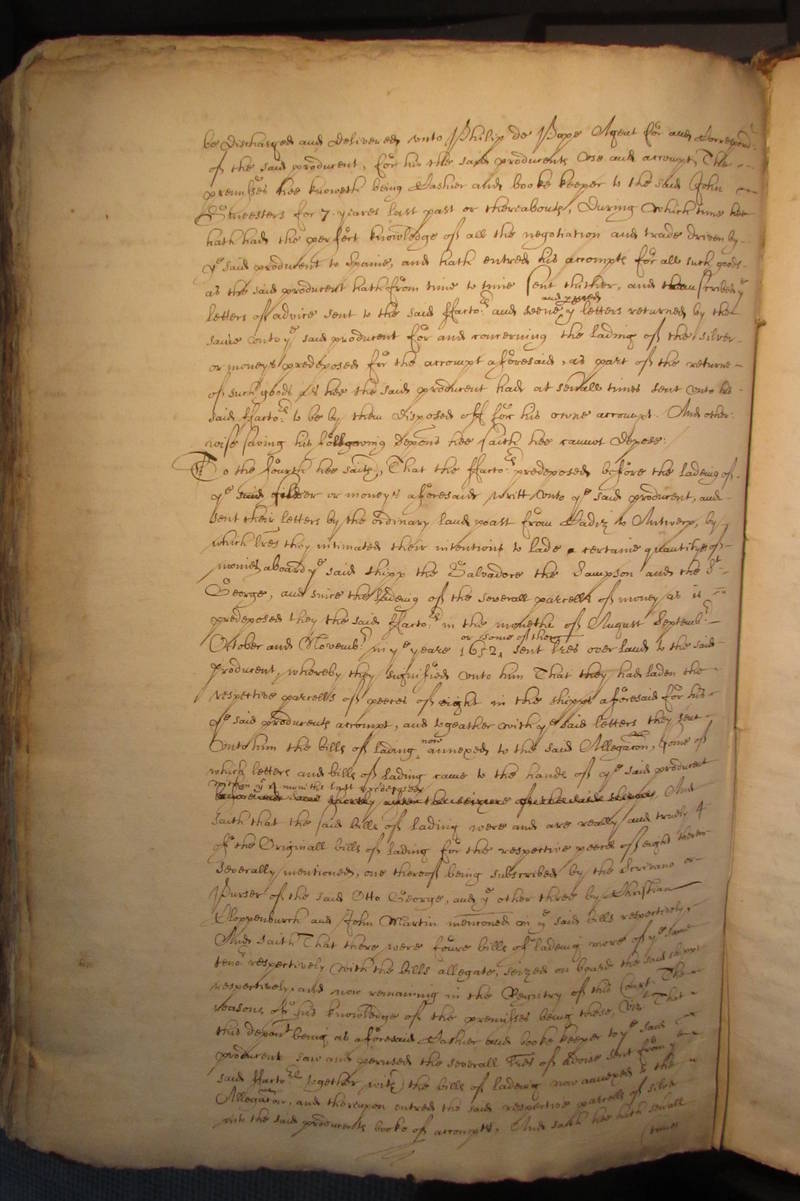 be discharged and delivered unto Philip de Pape Agent for and Correspond:
of the said producent, for his the said producents use and accompt, The
premisses hee knoweth being Cashier and booke keeper to the said John
for 7 yeares last past or thereabouts, During which time hee
hath had the perfect knowledge of all the negotiation and trade driven by
ye said producent to Spaine, and hath entred his accompts for all such goods
as the said producent hath from time to time sent thither, and ye
letters of advice sent to the said ffactors and seene and ye letters returned by the
same unto ye said producent for and concerning the lading of the silver
or moneys predeposed for the accompt aforesaid, as part of the returne
of such goods as hee the said producent had at severall times sent unto his
said ffactors to be by them disposed off for his owne accompt. And other
wise saving his following deposition hee saith hee cannot depose.
To the fourth hee saith, That the ffactors predeposed before the lading of
ye said silver or moneys aforesaid writt unto ye said producent, and
sent their letters by the ordinary land poast from Cadiz to Antwerp, by
which lres they intimated their intentions to lade a certaine quantitye of
monies aboard ye said shipp the Salvador the Sampson and the St
George, and since the lading of the severall parcells of money as is
predeposed they the said ffactors in the moneths of August Septembr
or some of them
October and Novembr in ye yeare 1652, sent lres over land to the said
Producent, whereby they signified unto him That they had laden the
respective parcells of peeces of eight in the shipps aforesaid for his
ye said producents accompt, and togeather with ye said letters they sent
unto him the bills of lading now annexed to the said Allegation, some of
which letters and bills of lading came to the hands of ye said producent
within ye 4 moneths last
And
saith that the said bills of lading were and are really and truely 4
of the Originall bills of lading for the respective peeces of eight therein
severally mentioned, one thereof being subscribed by the Scrivano or
Purser of the said Otto George, and ye other three by Christian
Cloppenburch and John Martin mencioned in ye said bills respectively,
And saith That there were foure bills of lading more of ye same
tenor respectively with the bills allegate, seized on board the said shipps
respectively, and now remaining in the Registry of this Court. The
reasons of his knowledge of the premisses being these, Viz That
this deponent being as aforesaid Cashier and booke keeper to ye said
producent saw and perused the severall lres of advice sent from ye
said ffactors together with the bills of lading now annexed to the
Allegation, and thereupon entred the said respective parcells of silver
into the said producents booke of accompts, And saith hee hath severall
times